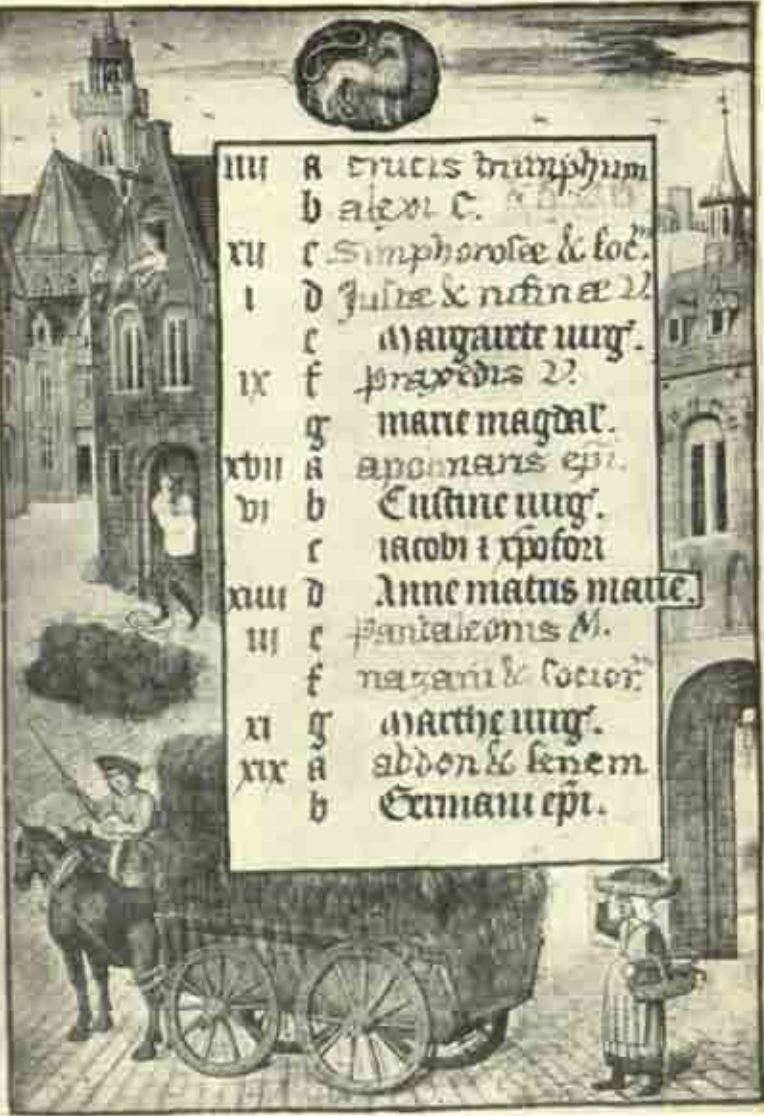 iiii A crucis triumphum
b alexi C.
xii c Simphorosæ & soc.
i d Justæ & rufinæ V.
e Margarete uirg.
ix f praxedis V.
g marie magdal.
xvii A aponnaris epi.
vi b Cristine uirg.
c iacobi ⁊ xpofori
xiiii d Anne matris marie.
iii e pantaleonis M.
f nazarii & socior.
xi g Marthe uirg.
xix A abdon & senem
b Germani epi.